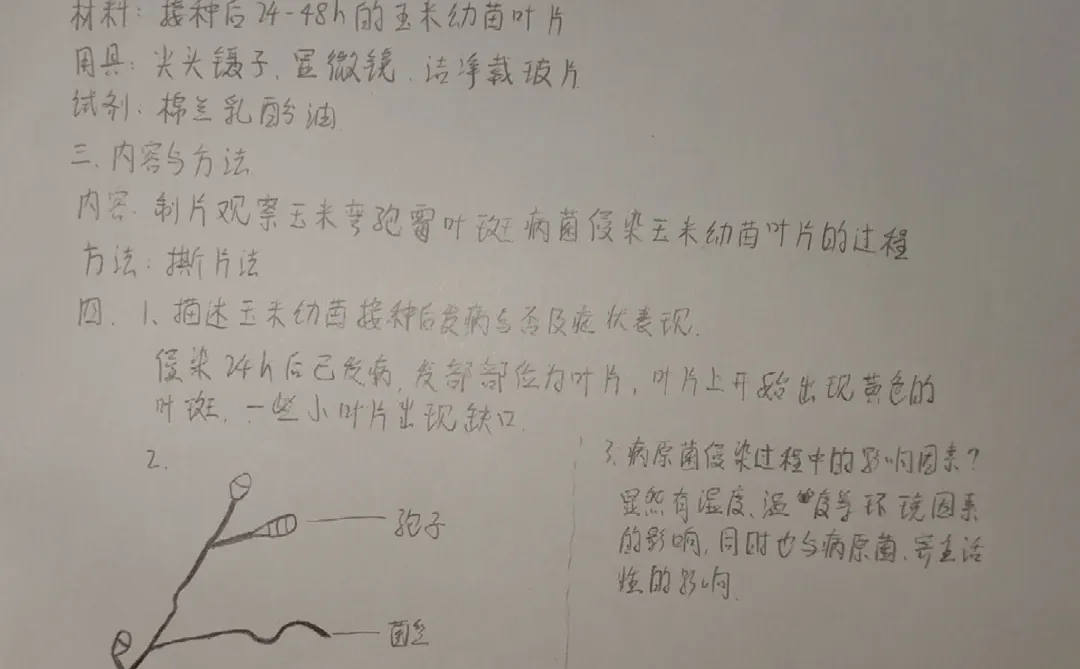 材料：接种后24-48h的玉米幼苗叶片
用具：尖头镊子、显微镜、洁净载玻片
试剂：棉兰乳酚油
三、内容与方法
内容：制片观察玉米弯孢霉叶斑病菌侵染玉米幼苗叶片的过程
方法：撕片法
四、1、描述玉米幼苗接种后发病与否及症状表现.
侵染24h后已发病，发部部位为叶片，叶片上开始出现黄色的
叶斑，一些小叶片出现缺口.
2.
孢子
菌丝
3、病原菌侵染过程中的影响因素？
显然有湿度、温度等环境因素
的影响，同时也与病原菌、寄主活
性的影响.